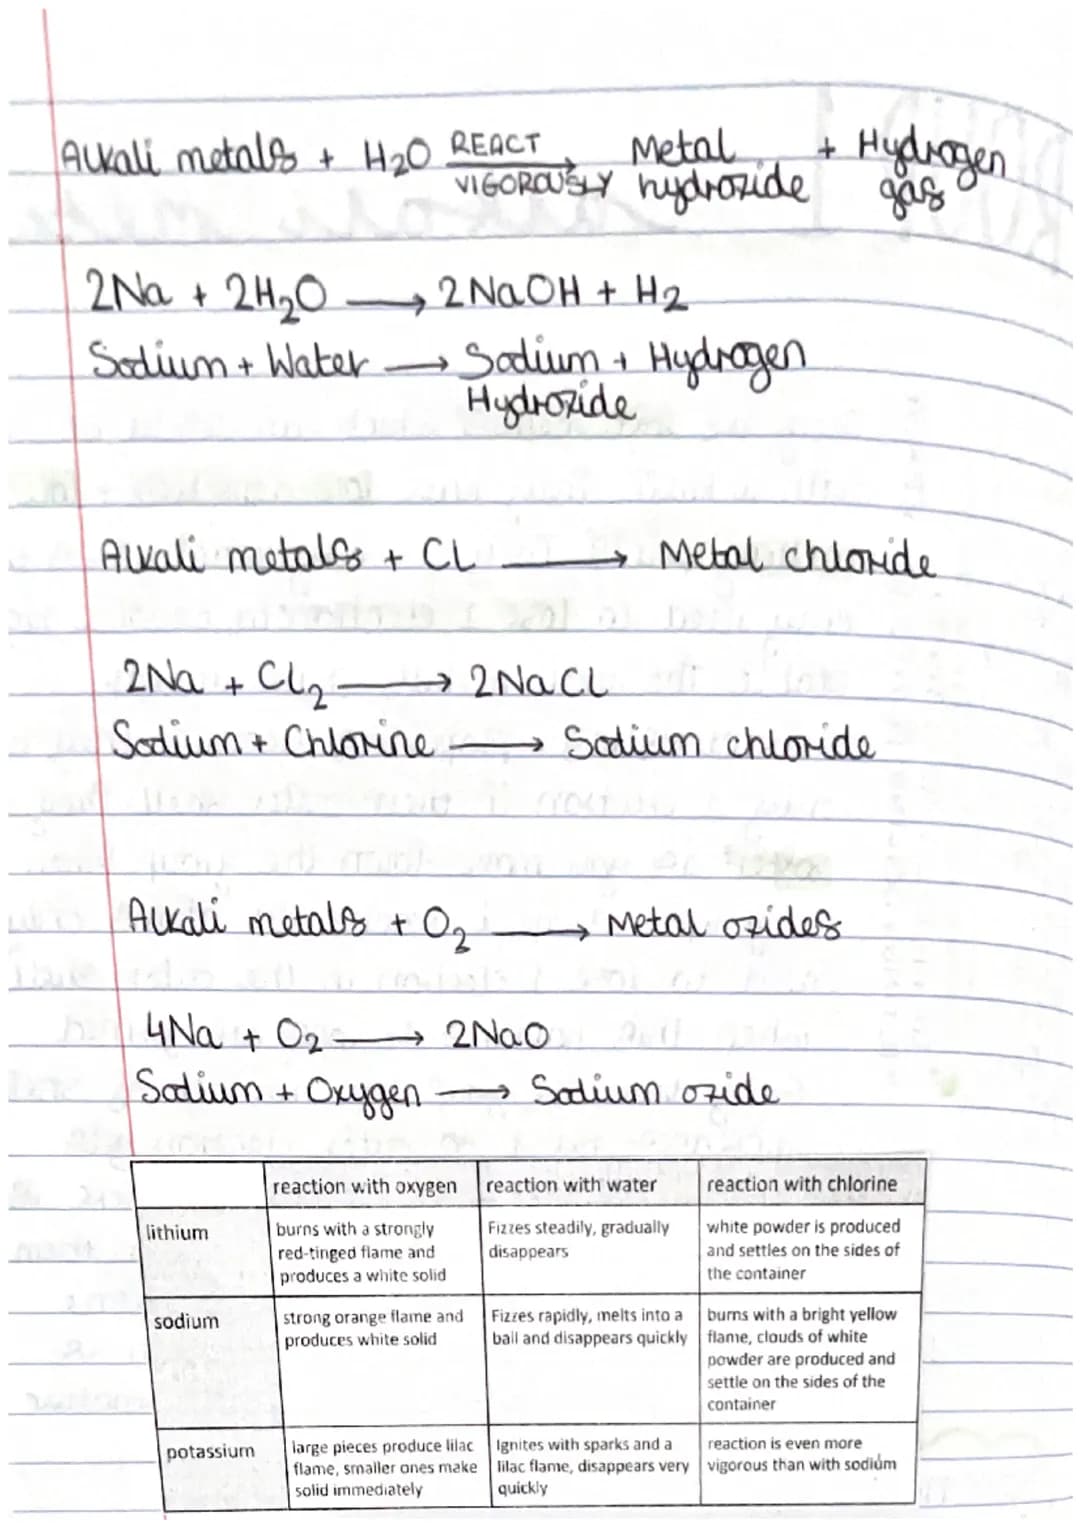 Alkali metals + H₂O REACT VIGOROUSLY → Metal hydroxide + Hydrogen gas
2Na + 2H₂O → 2NaOH + H₂
Sodium + Water → Sodium Hydroxide + Hydrogen
Alkali metals + Cl → Metal chloride
2Na + Cl₂ → 2NaCl
Sodium + Chlorine → Sodium chloride
Alkali metals + O₂ → Metal oxides
4Na + O₂ → 2NaO
Sodium + Oxygen → Sodium oxide
reaction with oxygen
reaction with water
reaction with chlorine
lithium
burns with a strongly
red-tinged flame and
produces a white solid
Fizzes steadily, gradually
disappears
white powder is produced
and settles on the sides of
the container
sodium
strong orange flame and
produces white solid
Fizzes rapidly, melts into a
ball and disappears quickly
burns with a bright yellow
flame, clouds of white
powder are produced and
settle on the sides of the
container
potassium
large pieces produce lilac
flame, smaller ones make
solid immediately
Ignites with sparks and a
lilac flame, disappears very
quickly
reaction is even more
vigorous than with sodium